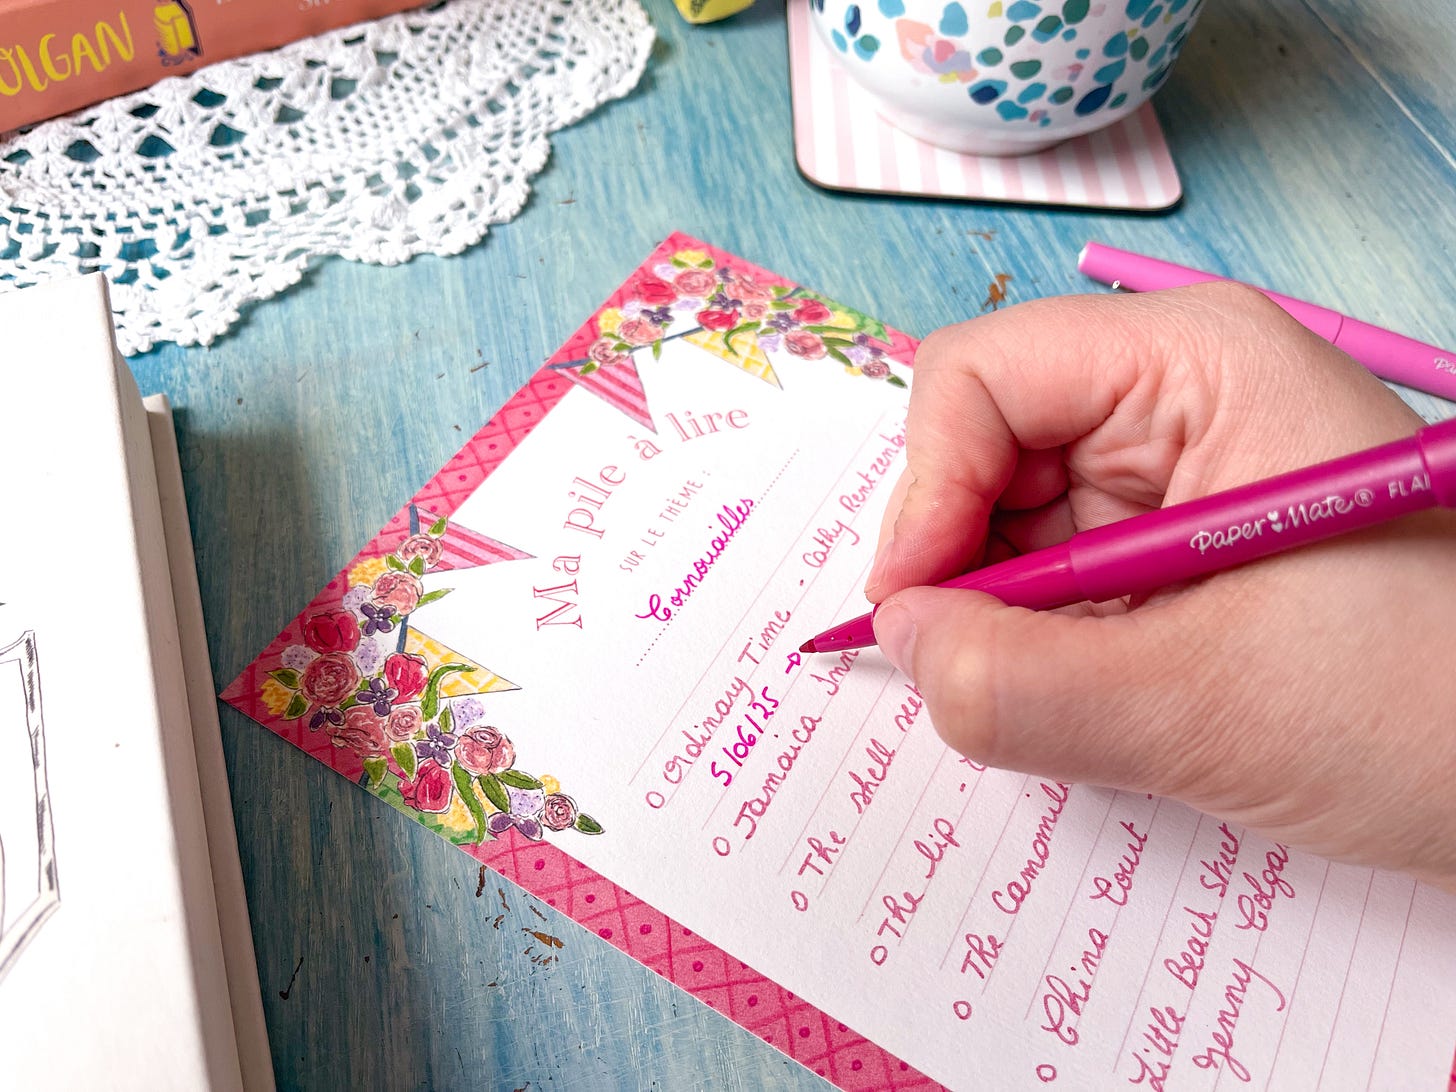 OLGAN
Ma pile à lire
SUR LE THÈME :
Cornouailles
Ordinary Time - Cathy Rentzenbri
5/06/25 →
Jamaica Inn
The shell see
The lip -
The Camomil
China Court -
Little Beach Street
Jenny Colga
Paper Mate® FLAI